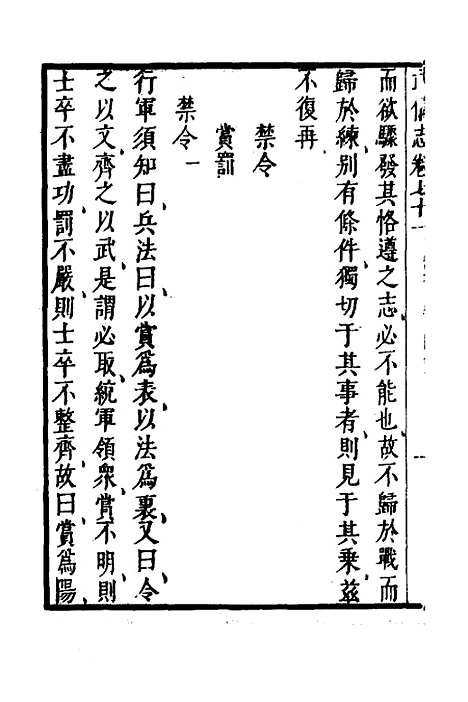 武備志卷七十一
而欲驟發其恪遵之志必不能也故不歸於戰而
歸於練别有條件獨切于其事者則見于其乘兹
不復再
禁令
賞罰
禁令一
行軍須知曰兵法曰以賞爲表以法爲裏又曰令
之以文齊之以武是謂必取統軍領衆賞不明則
士卒不盡功罰不嚴則士卒不整齊故曰賞爲陽